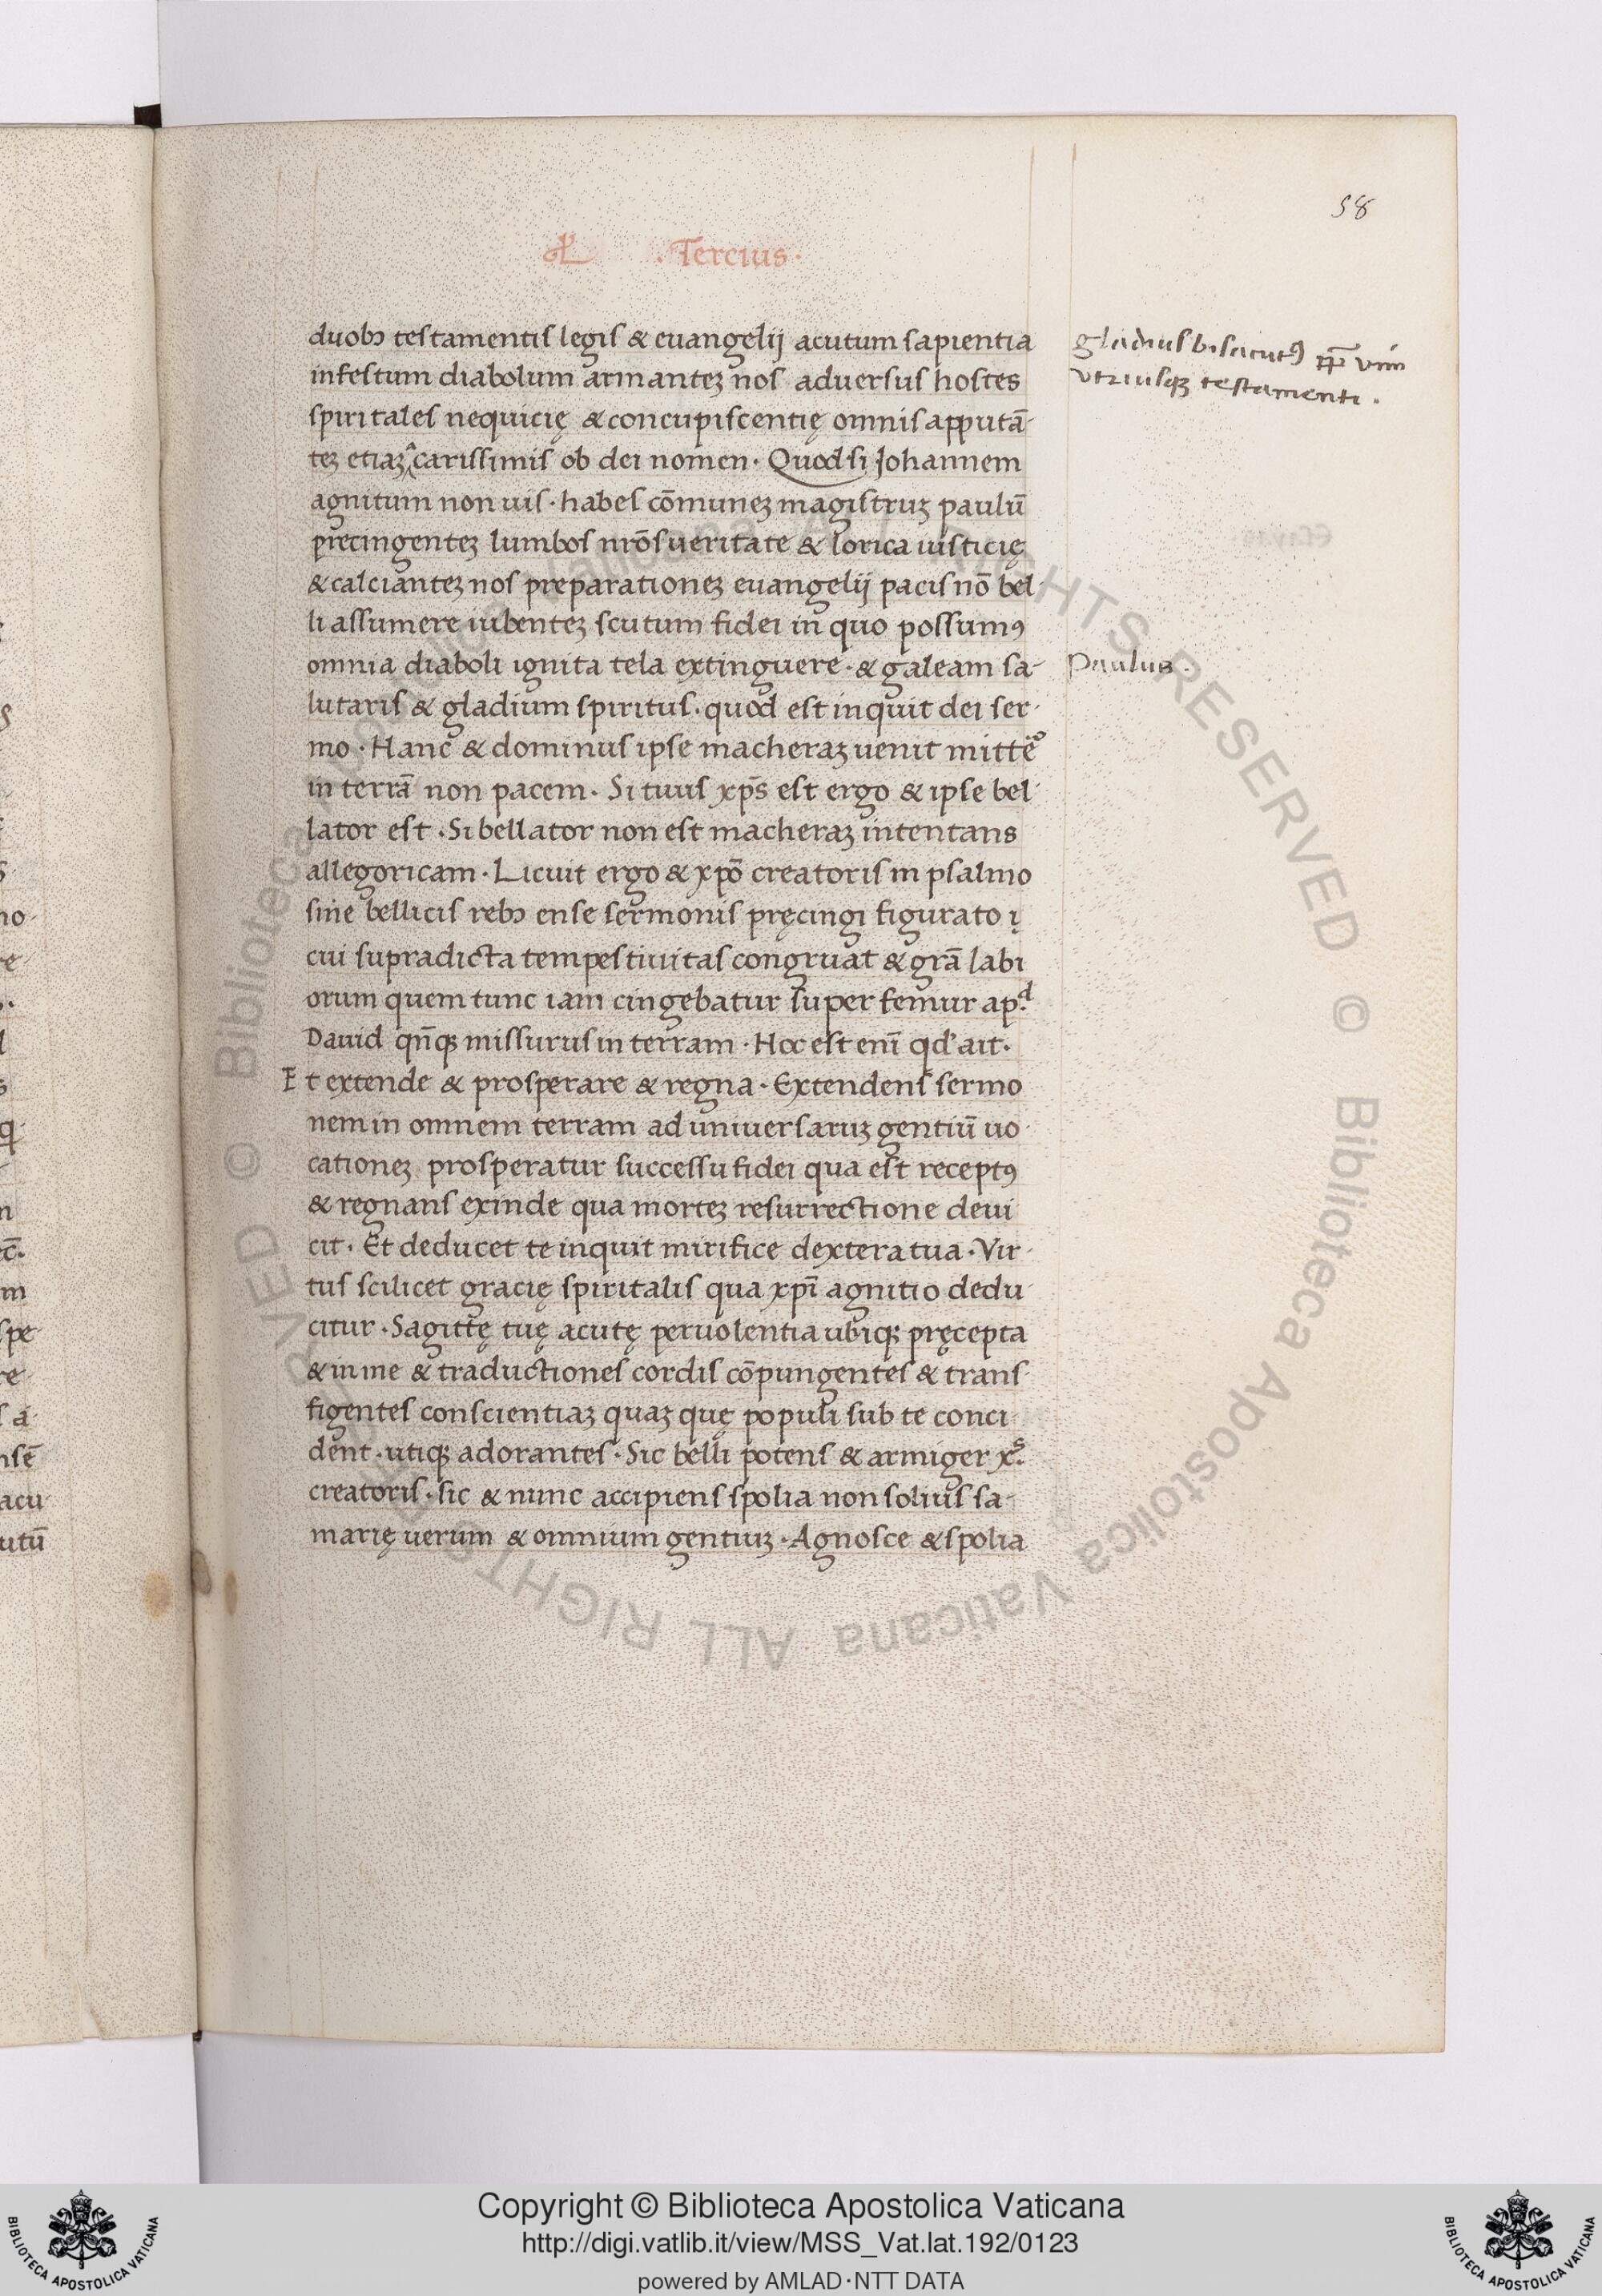 58
· Tercius ·
duobꝫ testamentis legis & euangelij acutum sapientia
infestum diabolum armanteꝫ nos aduersus hostes
spiritales nequicię & concupiscentię omnis apputā-
teꝫ etiaꝫ carissimis ob dei nomen · Quod si Johannem
agnitum non uis · habes cōmuneꝫ magistruꝫ paulū
precingenteꝫ lumbos nrōs ueritate & lorica iusticię
& calcianteꝫ nos preparationeꝫ euangelij pacis nō bel-
li assumere iubenteꝫ scutum fidei in quo possumꝯ
omnia diaboli ignita tela extinguere · & galeam sa-
lutaris & gladium spiritus · quod est inquit dei ser-
mo · Hanc & dominus ipse macheraꝫ uenit mittē
in terrā non pacem · Si tuus xp̄s est ergo & ipse bel-
lator est · Si bellator non est macheraꝫ intentans
allegoricam · Licuit ergo & xpō creatoris in psalmo
sine bellicis rebꝫ ense sermonis pręcingi figurato ị
cui supradicta tempestiuitas congruat & grā labi
orum quem tunc iam cingebatur super femur apᵈ
Dauid qn̄qꝫ missurus in terram · Hoc est enī qd' ait ·
Et extende & prosperare & regna · Extendens sermo
nem in omnem terram ad uniuersaruꝫ gentiū uo-
cationeꝫ prosperatur successu fidei qua est receptꝯ
& regnans exinde qua morteꝫ resurrectione deui
cit · Et deducet te inquit mirifice dextera tua · Vir-
tus scilicet gracię spiritalis qua xpī agnitio dedu
citur · Sagittę tuę acutę peruolentia ubiqꝫ pręcepta
& in me & traductiones cordis cōpungentes & trans-
figentes conscientiaꝫ quaꝫ quę populi sub te conci
dent · utiqꝫ adorantes · Sic belli potens & armiger xˢ
creatoris · sic & nunc accipiens spolia non solius sa-
marię uerum & omnium gentiuꝫ · Agnosce & spolia
gladius bisacutꝯ pp̄ vim
vtriusqꝫ testamenti ·
Paulus ·
Copyright © Biblioteca Apostolica Vaticana
http://digi.vatlib.it/view/MSS_Vat.lat.192/0123
powered by AMLAD·NTT DATA
BIBLIOTECA APOSTOLICA VATICANA
BIBLIOTECA APOSTOLICA VATICANA
© Biblioteca Apostolica Vaticana ALL RIGHTS RESERVED © Biblioteca Apostolica Vaticana ALL RIGHTS RESERVED